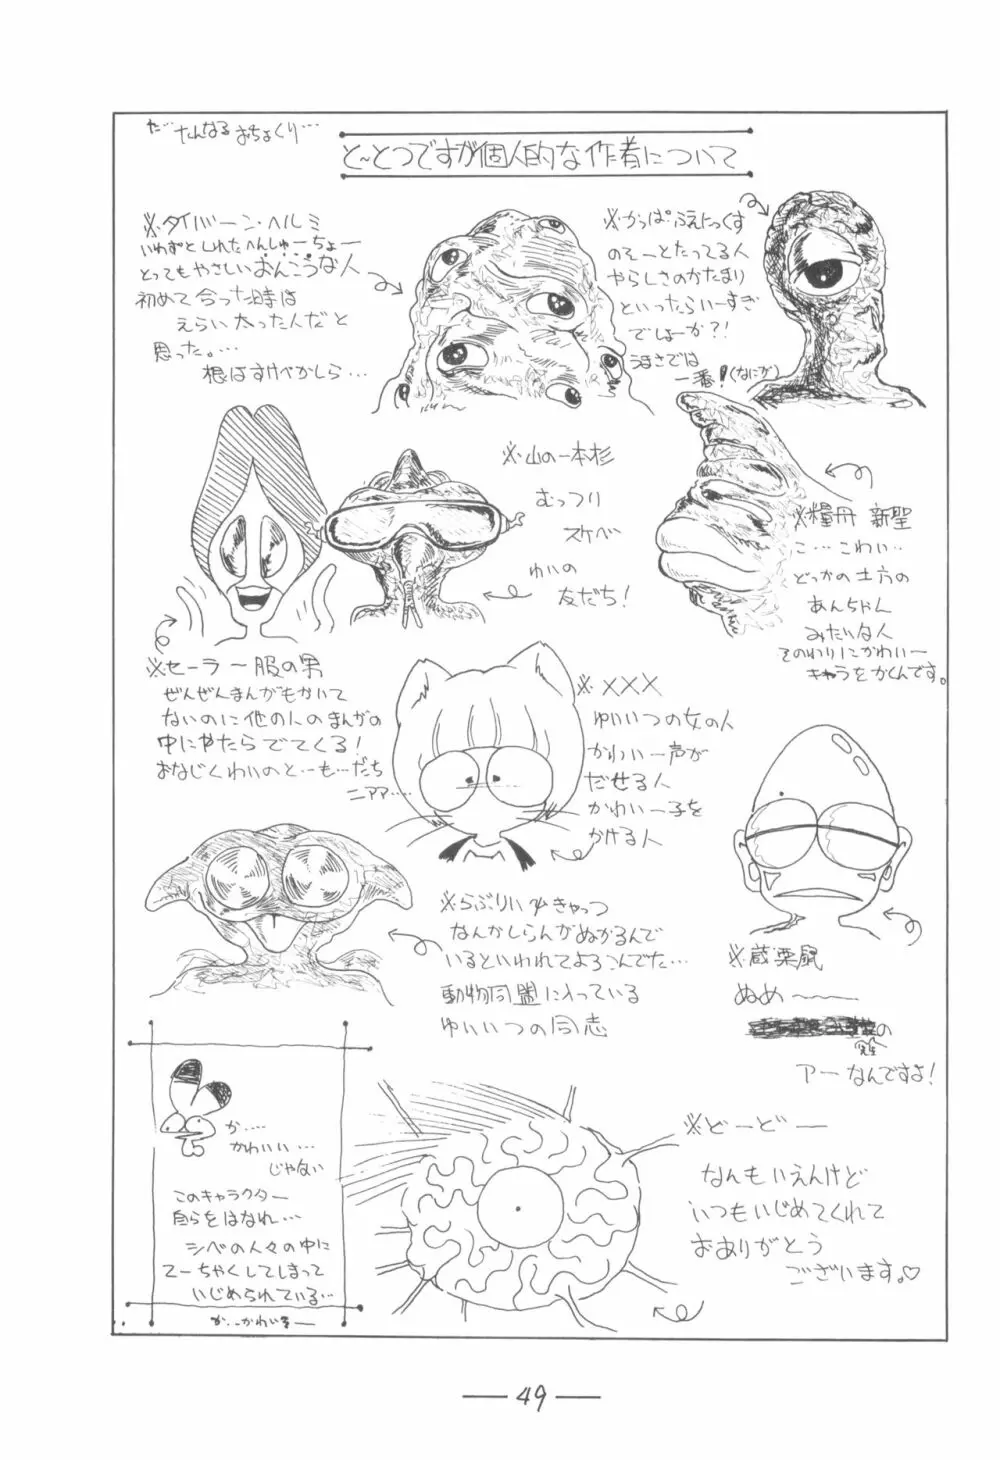 だ…たんなるおちょくり…
と〜とつですが個人的な作者について
※タイバーン・ヘルミ
いわずとしれたへんしゅーちょー
とってもやさしいおんこうな人
初めて合った時は
えらい太った人だと
思った。…
根はすけべかしら…
※かっぱふえにっくす
のそーとたってる人
やらしさのかたまり
といったらいーすぎ
でしょーか?!
うまさでは
一番!(なにが)
※山の一本杉
むっつり
スケベ
ゆいの
友だち!
※糧丹 新聖
こ…こわい…
どっかの土方の
あんちゃん
みたいな人
そのわりにかわいー
キャラをかくんです。
※セーラー服の男
ぜんぜんまんがもかいて
ないのに他の人のまんがの
中にやたらでてくる!
おなじくわいのと…も…だち
ニアア……
※×××
ゆいいつの女の人
かわいー声が
だせる人
かわいー子を
かける人
※らぶりい
きゃっつ
なんかしらんがぬかるんで
いるといわれてよろこんでた…
動物同盟に入っている
ゆいいつの同志
※蔵栗鼠
ぬめ〜
の
先生
アーなんですよ!
か……
かわいい…
じゃない
このキャラクター
自らをはなれ…
シベの人々の中に
てーちゃくしてしまって
いじめられている…
か…かわいそー
※どーどー
なんもいえんけど
いつもいじめてくれて
おありがとう
ございます。♡
49